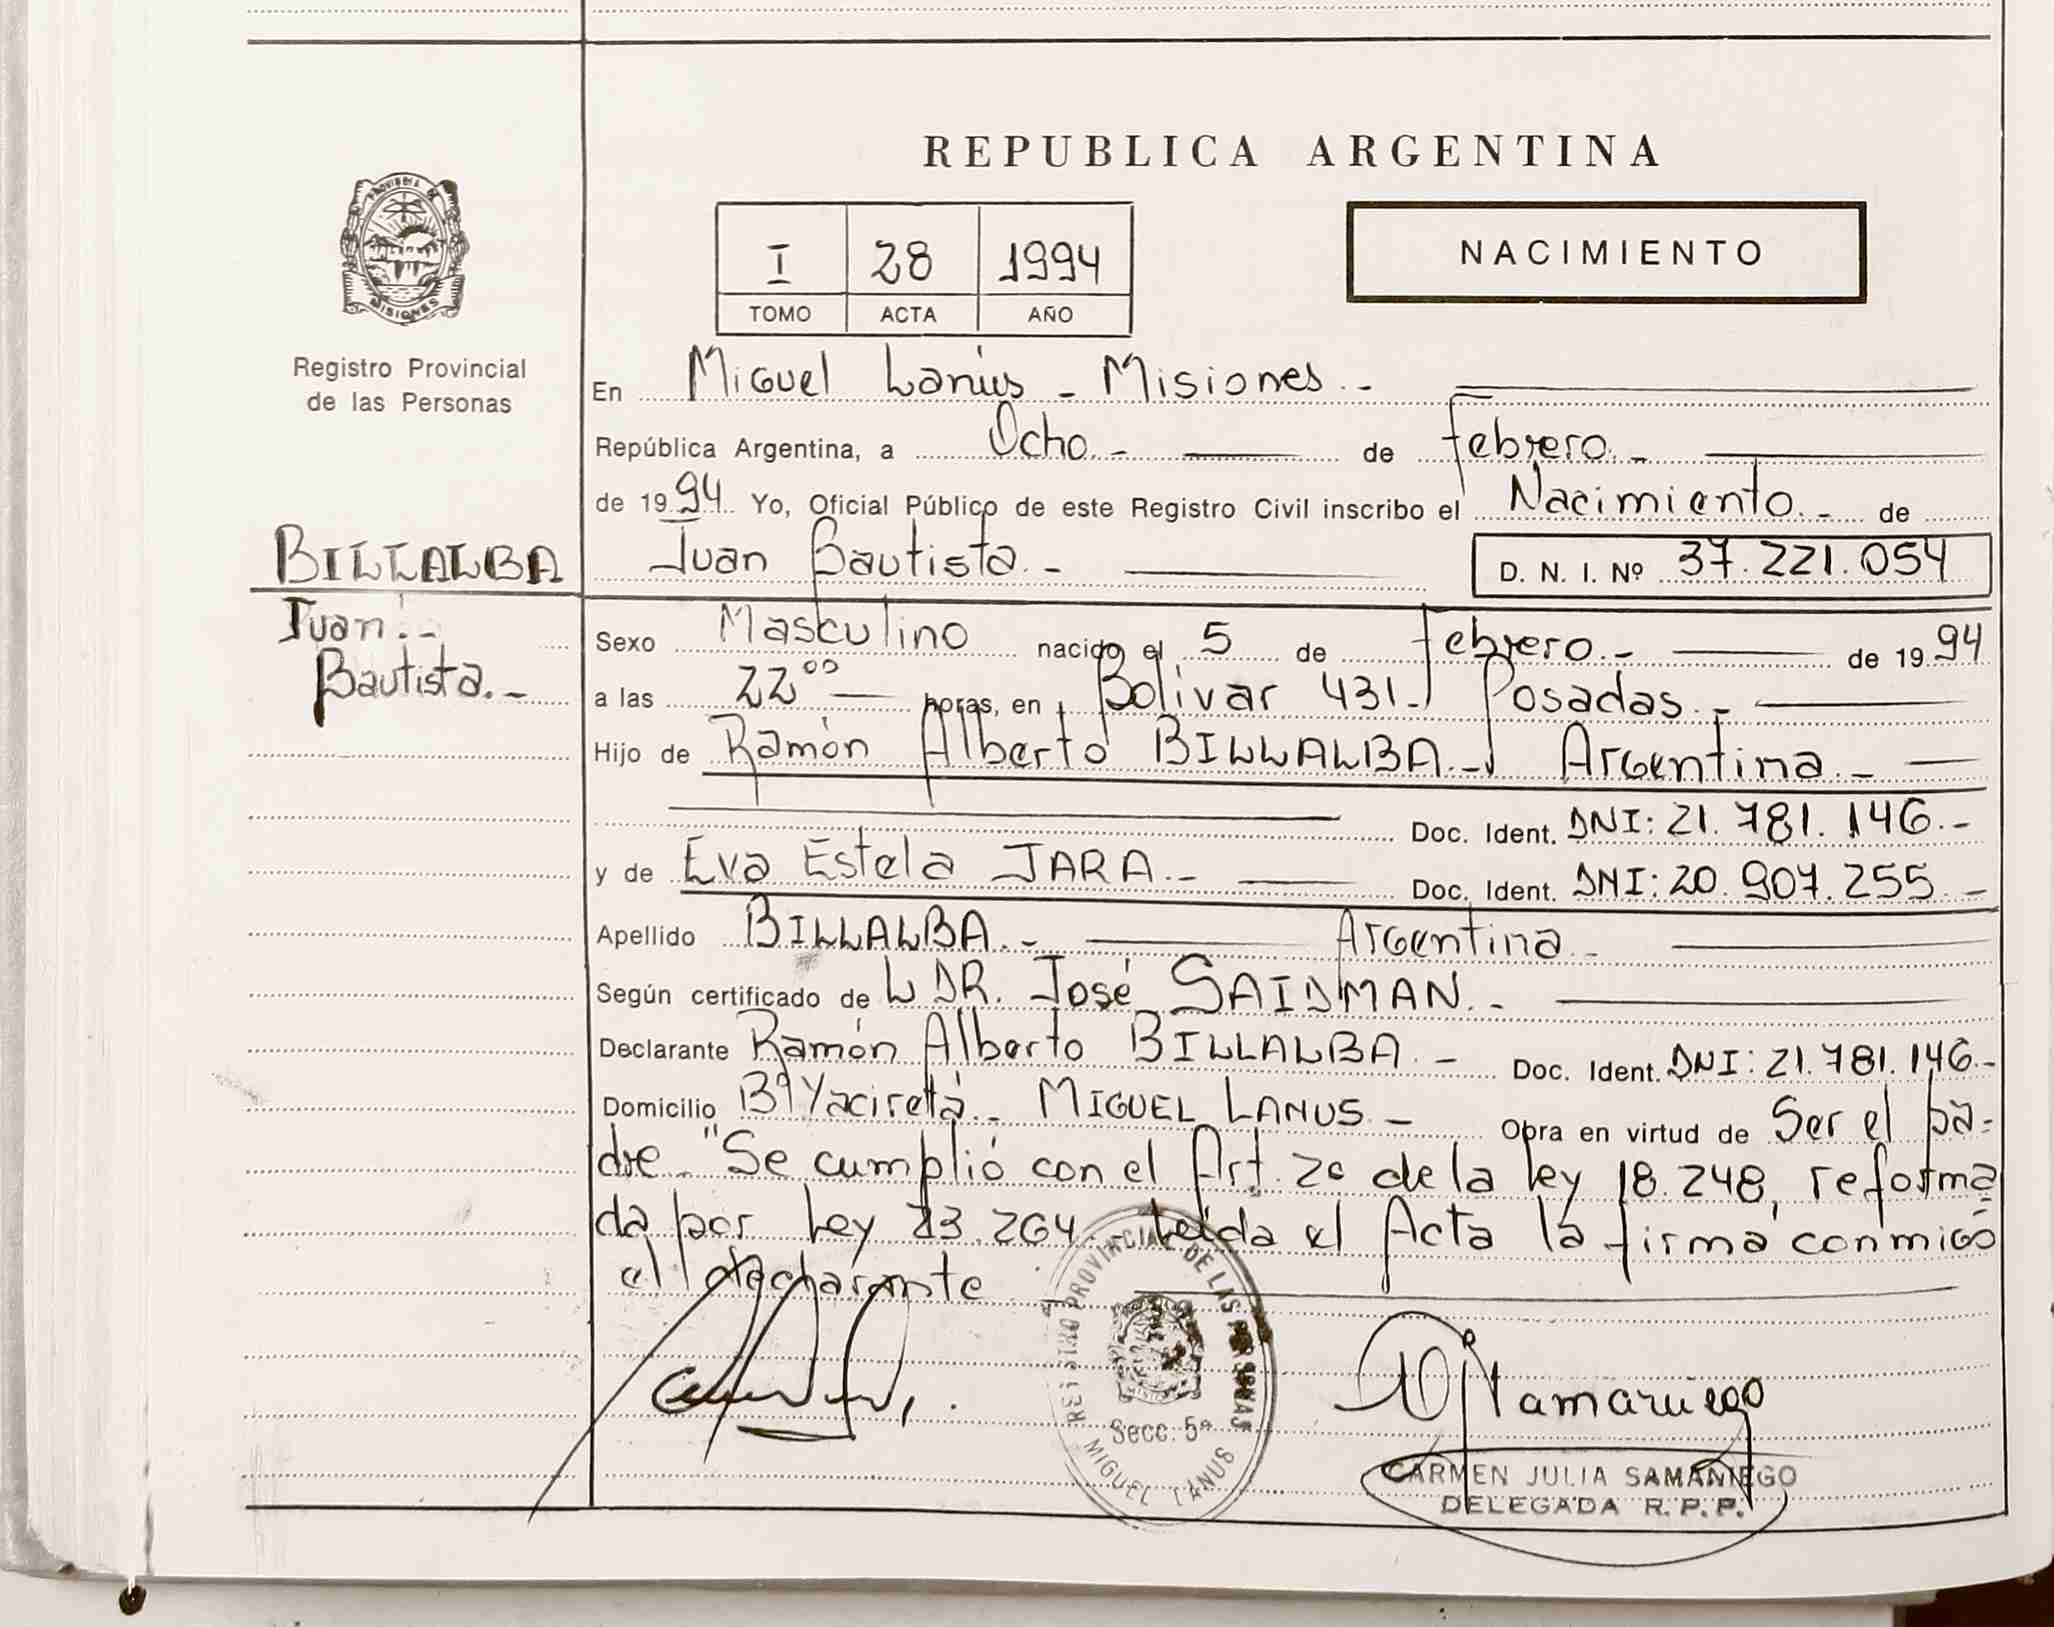 REPUBLICA ARGENTINA
PROVINCIA DE MISIONES
Registro Provincial
de las Personas
I 28 1994
TOMO ACTA AÑO
NACIMIENTO
En Miguel Lanús - Misiones.-
República Argentina, a Ocho.- de febrero.-
de 1994. Yo, Oficial Público de este Registro Civil inscribo el Nacimiento.- de
Juan Bautista.- D. N. I. Nº 37.221.054
BILLALBA
Juan.-
Bautista.-
Sexo Masculino nacido el 5 de febrero.- de 1994
a las 22⁰⁰ horas, en Bolívar 431. Posadas.-
Hijo de Ramón Alberto BILLALBA.- Argentina.-
Doc. Ident. DNI: 21.781.146.-
y de Eva Estela JARA.- Doc. Ident. DNI: 20.907.255.-
Apellido BILLALBA.- Argentina.-
Según certificado de L DR. José SAIDMAN.-
Declarante Ramón Alberto BILLALBA.- Doc. Ident. DNI: 21.781.146.-
Domicilio Bº Yaciretá.- MIGUEL LANUS.- Obra en virtud de Ser el pa-
dre.- "Se cumplió con el Art. 2º de la ley 18.248, reforma
da por Ley 23.264. Leída el Acta la firma conmigo
el declarante
REGISTRO PROVINCIAL DE LAS PERSONAS
Secc. 5ª
MIGUEL LANUS
CARMEN JULIA SAMANIEGO
DELEGADA R. P. P.